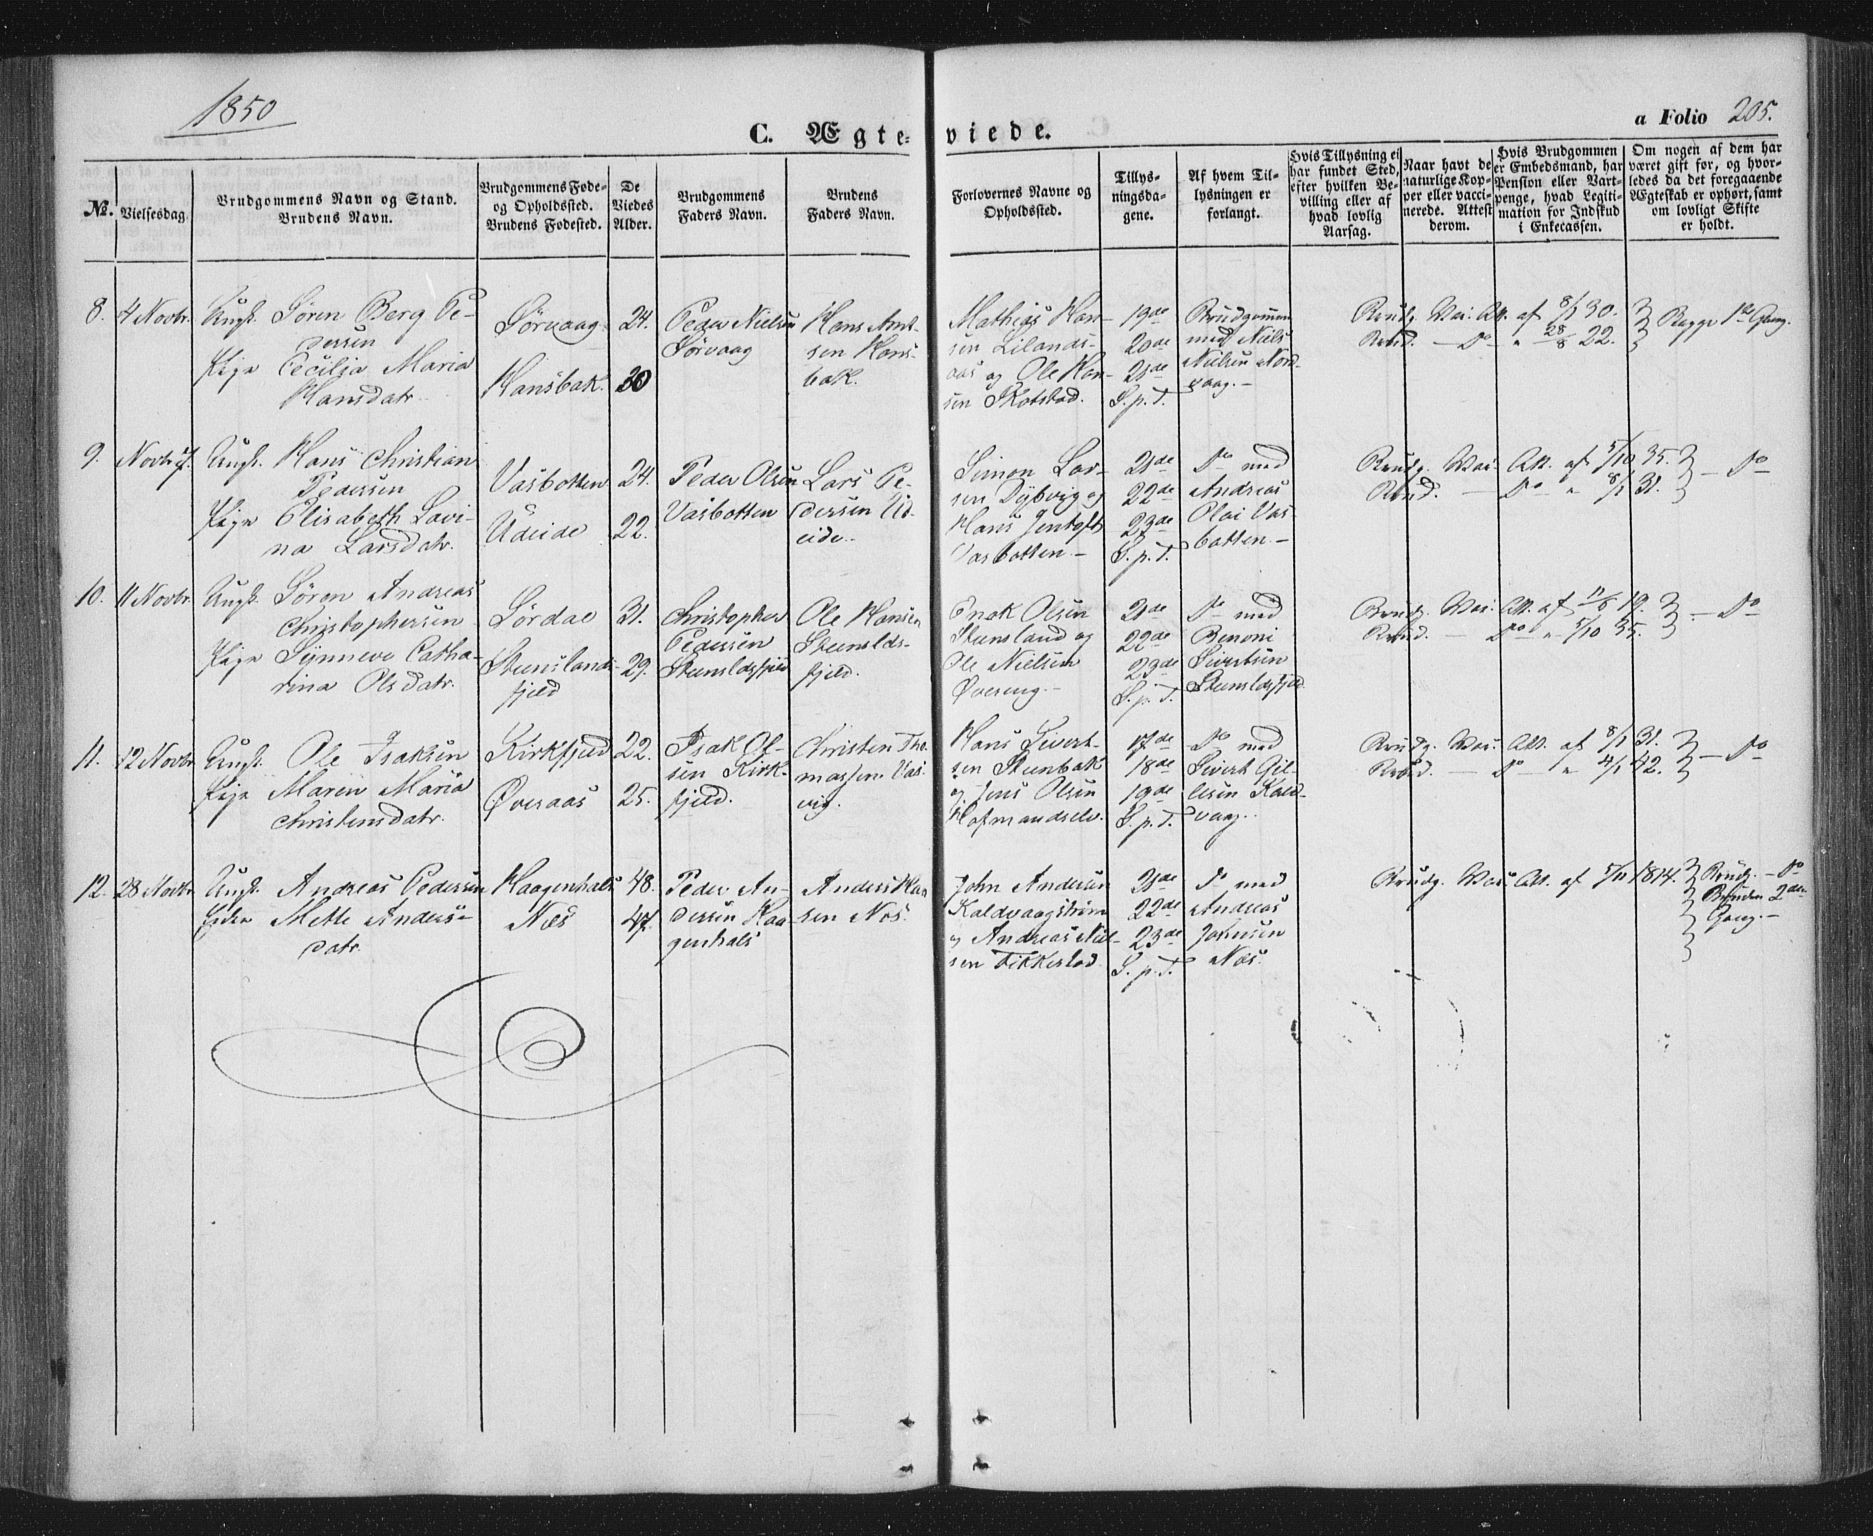 1850
C. Ægteviede.
a Folio 205.
No.
Vielsesdag.
Brudgommens Navn og Stand.
Brudens Navn.
Brudgommens Føde-
og Opholdssted.
Brudens Fødested.
De
Viedes
Alder.
Brudgommens
Faders Navn.
Brudens
Faders Navn.
Forlovernes Navne og
Opholdssted.
Tillys-
ningsda-
gene.
Af hvem Til-
lysningen er
forlangt.
Hvis Tillysning ei
har fundet Sted,
efter hvilken Be-
villing eller af
hvad lovlig
Aarsag.
Naar havt de
naturlige Kop-
per eller vacci-
nerede. Attest
derom.
Hvis Brudgommen
er Embedsmand, har
Pension eller Vart-
penge, hvad Legiti-
mation for Indskud
i Enkecassen.
Om nogen af dem har
været gift før, og hvor-
ledes da det foregaaende
Ægteskab er ophørt, samt
om lovligt Skifte
er holdt.
8. 4 Novbr.
Ungk. Søren Berg Pe-
dersen
Pige Cecilia Maria
Hansdatr.
Sørvaag
Hansbak.
24.
30
Peder Nielsen
Sørvaag
Hans Ant-
sen Hans-
bak.
Mathias Han-
sen Lilands-
aas og Ole Han-
sen Skotstad.
19de
20de
21de
S. p. T.
Brudgommen
med Niels
Nielsen Nord-
vaag.
Brudg. Vac. Att. af 8/1 30.
Brud. — Do — " 28/8 22.
Begge 1ste Gang.
9. Novbr
Ungk. Hans Christian
Pedersen
Pige Elisabeth Lovi-
na Larsdatr.
Vasbotten
Udeide
24.
22.
Peder Olsen
Vasbotten
Lars Pe-
dersen Ud-
eide.
Simon Lar-
sen Dybvig og
Hans Jentoft
Vasbotten —
21de
22de
23de
S. p. T.
Do med
Andreas
Olai Vas-
botten —
Brudg. Vac. Att. af 5/10 35.
Brud. — Do " 8/1 31.
— Do
10. 11 Novbr.
Ungk. Søren Andreas
Christophersen
Pige Synneve Catha-
rina Olsdatr.
Sørdal
Steensland-
fjeld
31.
29.
Christopher
Pedersen
Steensldsfjeld
Ole Hansen
Steenslds-
fjeld.
Enok Olsen
Steensland og
Ole Nielsen
Øvereng.
21de
22de
23de
S. p. T.
Do med
Benoni
Sivertsen
Steensldsfjeld
Brudg. Vac. Att. af 19.
Brud. — Do " 5/10 35.
— Do
11. 12 Novbr
Ungk. Ole Isaksen
Pige Maren Maria
Christensdatr.
Kirkfjeld
Øveraas
22.
25.
Isak Ol-
sen Kirk-
fjeld.
Christen Tho-
massen Vas-
vig.
Hans Sivert-
sen Steenbak
og Jens Olsen
Hofmandselv.
17de
18de
19de
S. p. T.
Do med
Sivert Gil-
lesen Kald-
vaag.
Brudg. Vac. Att. af 8/1 31.
Brud. — Do " 4/1 42.
— Do
12. 28 Novbr
Ungk. Andreas Pedersen
Enken Mette Anders-
datr.
Haagenhals
Næs
48.
47.
Peder An-
dersen Haa-
genhals
Anders Haa-
sen Næs.
John Andersen
Kaldvaagstrøm
og Andreas Niel-
sen Fikkestad.
21de
22de
23de
S. p. T.
Do med
Andreas
Johnsen
Næs.
Brudg. Vac. Att. af 5/11 1814.
Brudg. — Do
Bruden 2den
Gang. —